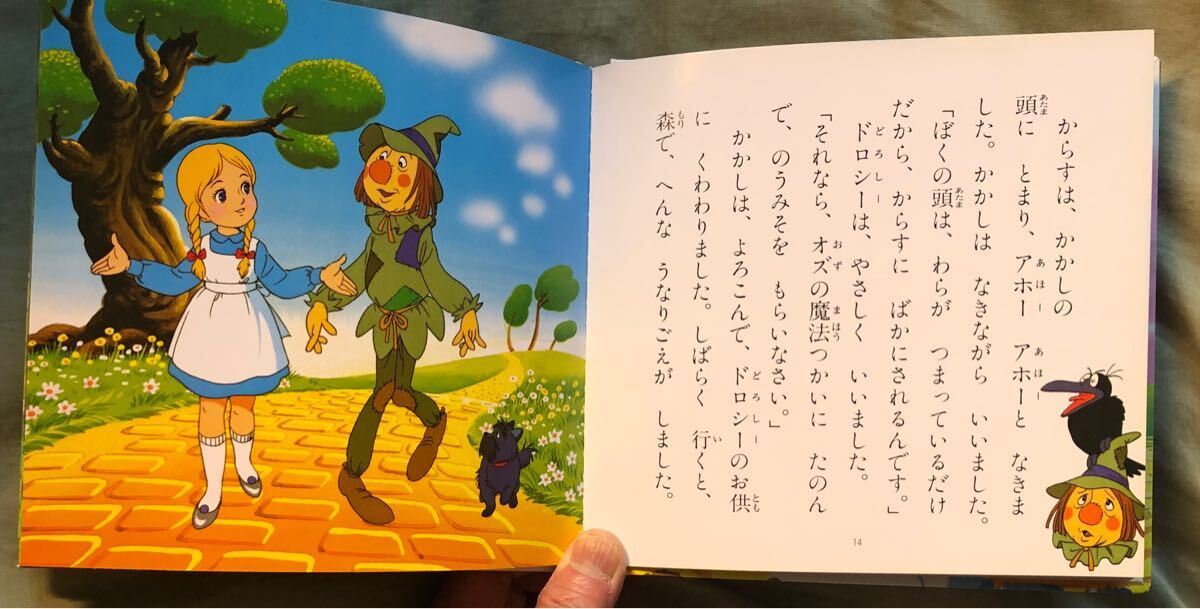 からすは、かかしの
頭に とまり、アホー アホーと なきま
した。かかしは なきながら いいました。
「ぼくの頭は、わらが つまっているだけ
だから、からすに ばかにされるんです。」
ドロシーは、やさしく いいました。
「それなら、オズの魔法つかいに たのん
で、のうみそを もらいなさい。」
かかしは、よろこんで、ドロシーのお供
に くわわりました。しばらく 行くと、
森で、へんな うなりごえが しました。
14